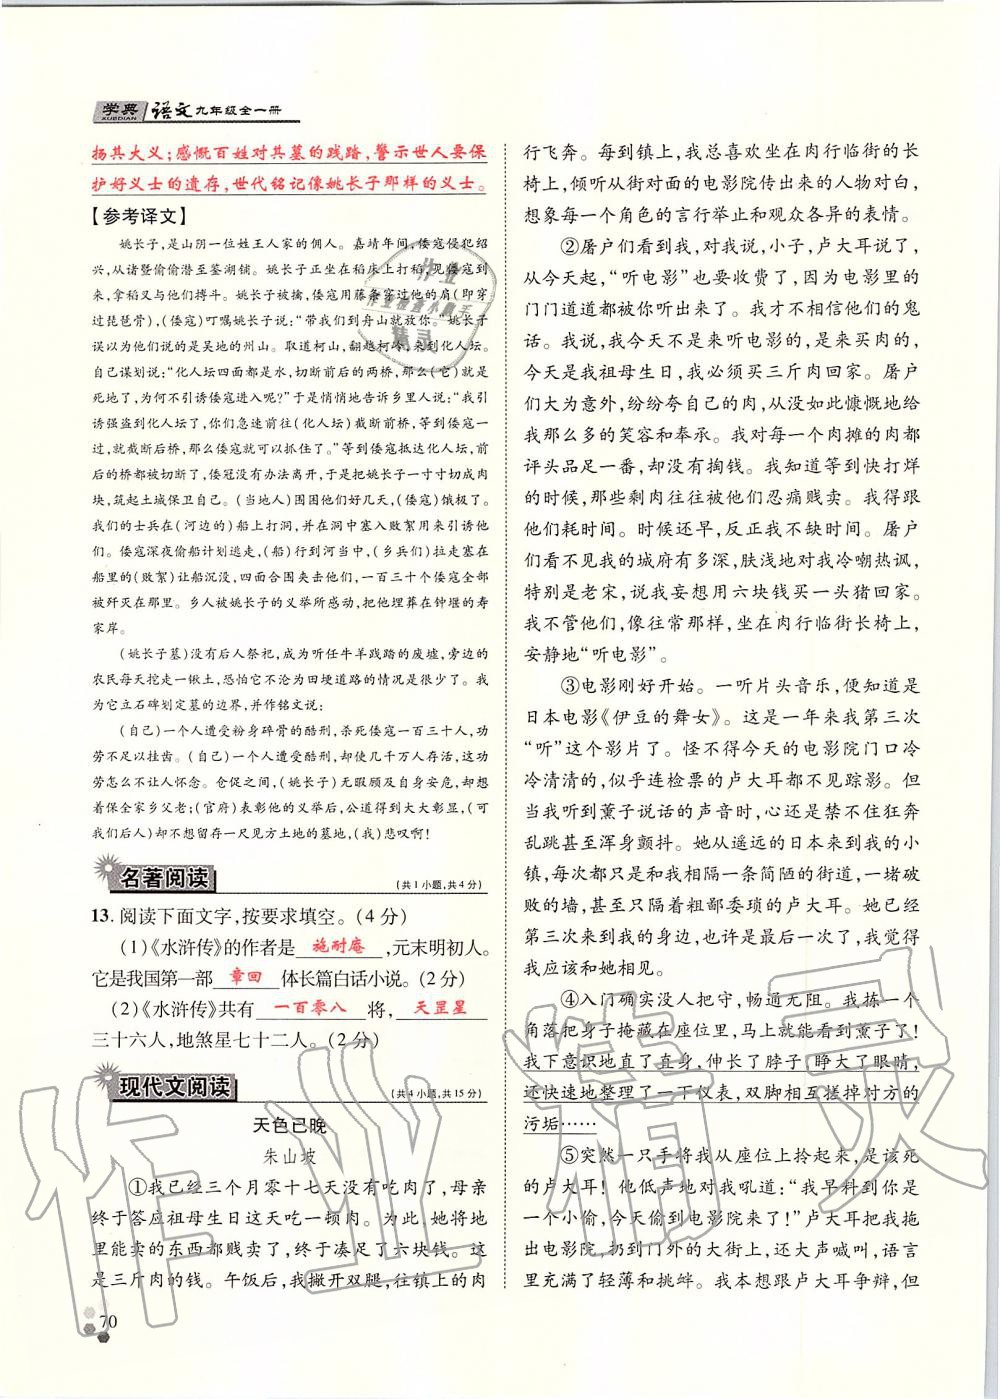 学典
XUEDIAN
语文九年级全一册
扬其大义;感慨百姓对其墓的践踏,警示世人要保
护好义士的遗存,世代铭记像姚长子那样的义士。
【参考译文】
姚长子,是山阴一位姓王人家的佣人。嘉靖年间,倭寇侵犯绍
兴,从诸暨偷偷潜至鉴湖铺。姚长子正坐在稻床上打稻,见倭寇到
来,拿稻叉与他们搏斗。姚长子被擒,倭寇用藤条穿过他的肩(即穿
过琵琶骨),(倭寇)叮嘱姚长子说:“带我们到舟山就放你。”姚长子
误以为他们说的是吴地的州山。取道柯山,翻越柯岭,来到化人坛。
自己谋划说:“化人坛四面都是水,切断前后的两桥,那么(它)就是
死地了,为何不引诱倭寇进入呢?”于是悄悄地告诉乡里人说:“我引
诱强盗到化人坛了,你们急速前往(化人坛)截断前桥,等到倭寇一
过,就截断后桥,那么倭寇就可以抓住了。”等到倭寇抵达化人坛,前
后的桥都被切断了,倭寇没有办法离开,于是把姚长子一寸寸切成肉
块,筑起土城保卫自己。(当地人)围困他们好几天,(倭寇)饿极了。
我们的士兵在(河边的)船上打洞,并在洞中塞入败絮用来引诱他
们。倭寇深夜偷船计划逃走,(船)行到河当中,(乡兵们)拉走塞在
船里的(败絮)让船沉没,四面合围夹击他们,一百三十个倭寇全部
被歼灭在那里。乡人被姚长子的义举所感动,把他埋葬在钟堰的寿
家岸。
(姚长子墓)没有后人祭祀,成为听任牛羊践踏的废墟,旁边的
农民每天挖走一锹土,恐怕它不沦为田埂道路的情况是很少了。我
为它立石碑划定墓的边界,并作铭文说:
(自己)一个人遭受粉身碎骨的酷刑,杀死倭寇一百三十人,功
劳不足以挂齿。(自己)一个人遭受酷刑,却使几千万人存活,这功
劳怎么不让人怀念。仓促之间,(姚长子)无暇顾及自身安危,却想
着保全家乡父老;(官府)表彰他的义举后,公道得到大大彰显,(可
我们后人)却不想留存一尺见方土地的墓地,(我)悲叹啊!
名著阅读
(共1小题,共4分)
13. 阅读下面文字,按要求填空。(4分)
(1)《水浒传》的作者是 施耐庵 ,元末明初人。
它是我国第一部 章回 体长篇白话小说。(2分)
(2)《水浒传》共有 一百零八 将, 天罡星
三十六人,地煞星七十二人。(2分)
现代文阅读
(共4小题,共15分)
天色已晚
朱山坡
①我已经三个月零十七天没有吃肉了,母亲
终于答应祖母生日这天吃一顿肉。为此,她将家
里能卖的东西都贱卖了,终于凑足了六块钱。这
是三斤肉的钱。午饭后,我撇开双腿,往镇上的肉
行飞奔。每到镇上,我总喜欢坐在肉行临街的长
椅上,倾听从街对面的电影院传出来的人物对白,
想象每一个角色的言行举止和观众各异的表情。
②屠户们看到我,对我说,小子,卢大耳说了,
从今天起,“听电影”也要收费了,因为电影里的
门门道道都被你听出来了。我才不相信他们的鬼
话。我说,我今天不是来听电影的,是来买肉的,
今天是我祖母生日,我必须买三斤肉回家。屠户
们大为意外,纷纷夸自己的肉,从没如此慷慨地给
我那么多的笑容和奉承。我对每一个肉摊的肉都
评头品足一番,却没有掏钱。我知道等到快打烊
的时候,那些剩肉往往被他们忍痛贱卖。我得跟
他们耗时间。时候还早,反正我不缺时间。屠户
们看不见我的城府有多深,肤浅地对我冷嘲热讽,
特别是老宋,说我妄想用六块钱买一头猪回家。
我不管他们,像往常那样,坐在肉行临街长椅上,
安静地“听电影”。
③电影刚好开始。一听片头音乐,便知道是
日本电影《伊豆的舞女》。这是一年来我第三次
“听”这个影片了。怪不得今天的电影院门口冷
冷清清的,似乎连检票的卢大耳都不见踪影。但
当我听到薰子说话的声音时,心还是禁不住狂奔
乱跳甚至浑身颤抖。她从遥远的日本来到我的小
镇,此刻就和我相隔一条简陋的街道,一堵破
败的墙,甚至只隔着粗鄙委琐的卢大耳。她已经
第三次来到我的身边,也许是最后一次了,我觉得
我应该和她相见。
④入门确实没人把守,畅通无阻。我拣一个
角落把身子掩藏在座位里,马上就看到薰子了!
我下意识地直了直身,伸长了脖子,睁大了眼睛,
还快速地整理了一下仪表,双脚相互搓掉对方的
污垢……
⑤突然一只手将我从座位上拎起来,是该死
的卢大耳!他低声地对我吼道:“我早料到你是
一个小偷,今天偷到电影院来了!”卢大耳把我拖
出电影院,扔到门外的大街上,还大声喊叫,语言
里充满了轻薄和挑衅。我本想跟卢大耳争辩,但
70
作业精灵